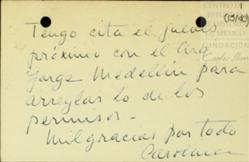 (15/40)
Tengo cita el jueves
próximo con el Arq
Jorge Medellín para
arreglar lo de los
permisos.
Mil gracias por todo
Carolina